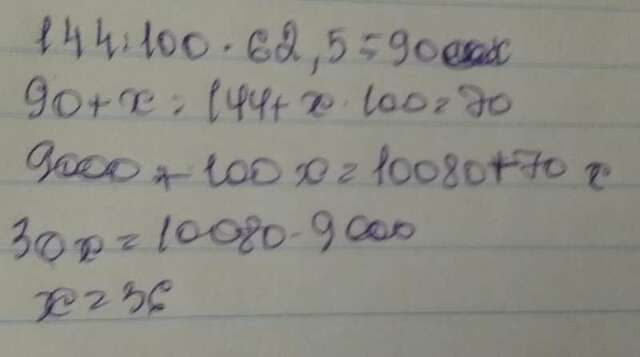 144:100·62,5=90
90+x:144+x·100=70
9000+100x=10080+70x
30x=10080-9000
x=36